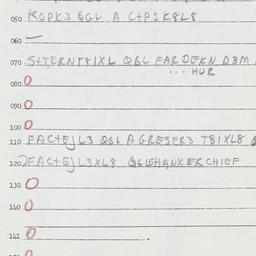 050 KOPK3 QGL A C+P2K8L8
060 —
070 S+TERNT8IXL QGL FARDEKN D3M
... HUR
080 O
090 O
100 O
110 FACTEJL3 QGL AGRESER3 T8IXL8
120 FACTEJL3XL8 QGLEHANKERCHIEF
130 O
140 O
141 O